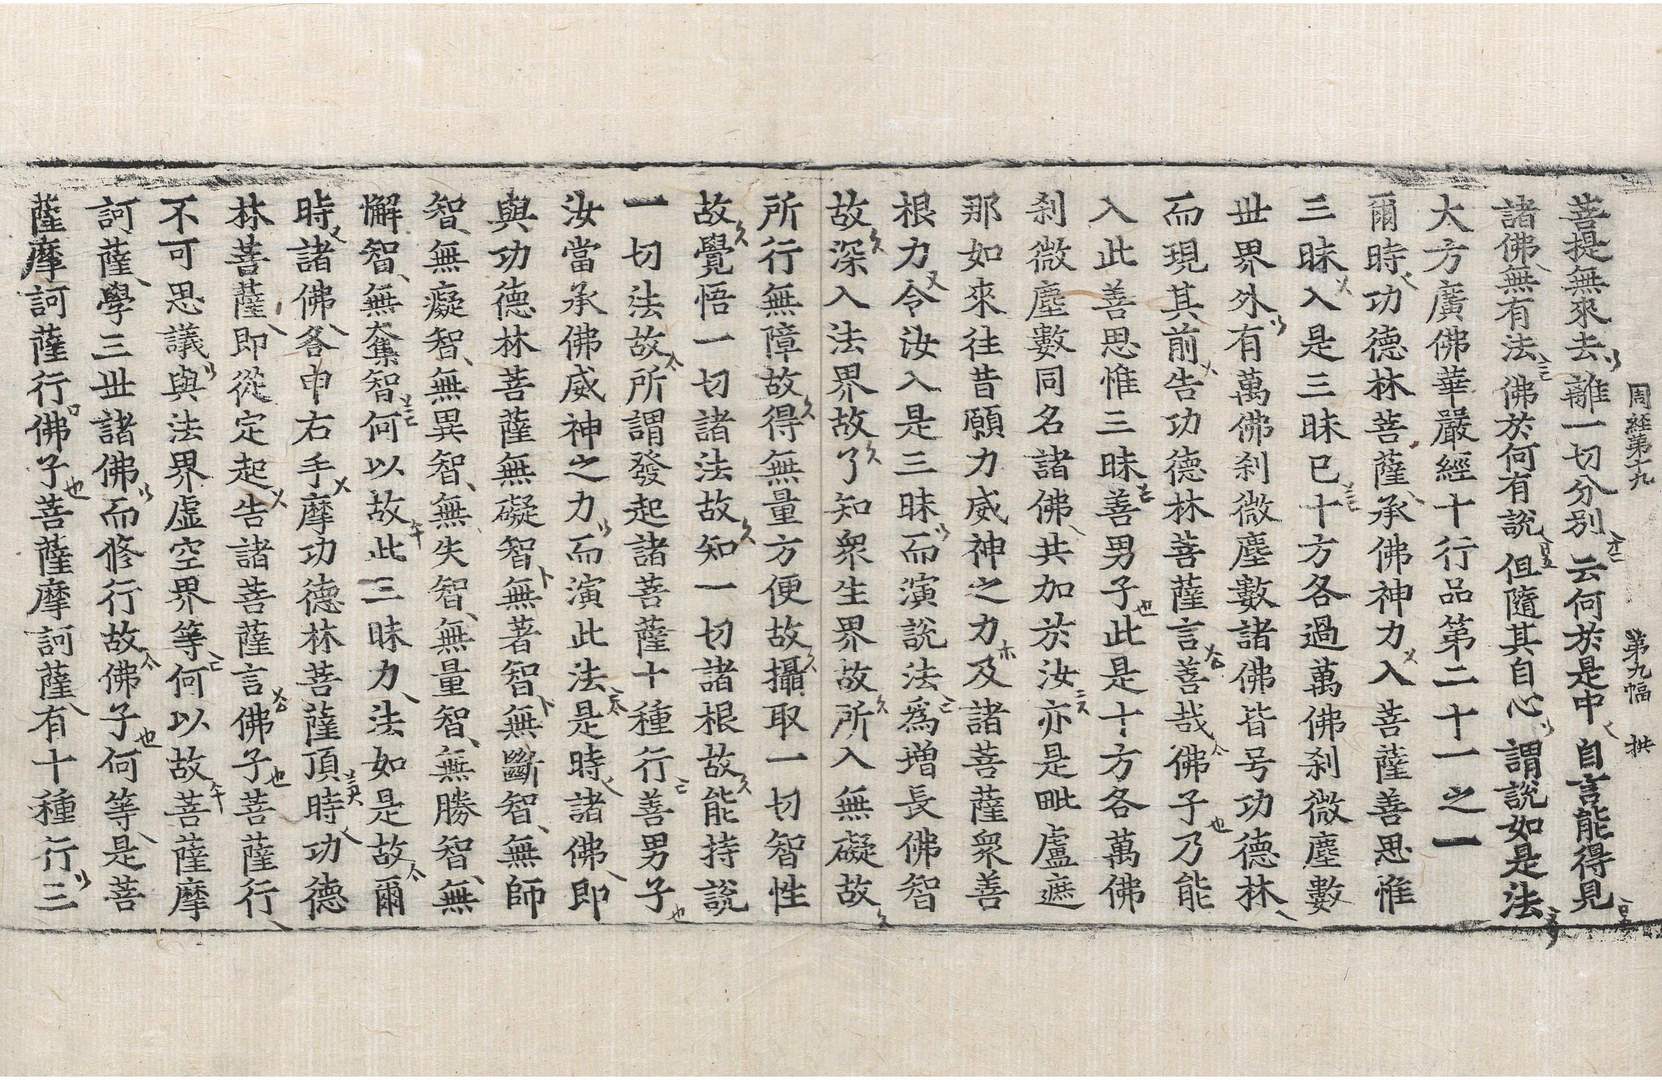 周經第十九 第九幅 拱
菩提無來去 離一切分別 云何於是中 自言能得見
諸佛無有法 佛於何有說 但隨其自心 謂說如是法
大方廣佛華嚴經十行品第二十一之一
爾時功德林菩薩承佛神力入菩薩善思惟
三昧入是三昧已十方各過萬佛剎微塵數
世界外有萬佛剎微塵數諸佛皆号功德林
而現其前告功德林菩薩言善哉佛子乃能
入此善思惟三昧善男子此是十方各萬佛
剎微塵數同名諸佛共加於汝亦是毗盧遮
那如來往昔願力威神之力及諸菩薩衆善
根力令汝入是三昧而演說法為增長佛智
故深入法界故了知衆生界故所入無礙故
所行無障故得無量方便故攝取一切智性
故覺悟一切諸法故知一切諸根故能持說
一切法故所謂發起諸菩薩十種行善男子
汝當承佛威神之力而演此法是時諸佛即
與功德林菩薩無礙智無著智無斷智無師
智無癡智無異智無失智無量智無勝智無
懈智無奪智何以故此三昧力法如是故爾
時諸佛各申右手摩功德林菩薩頂時功德
林菩薩即從定起告諸菩薩言佛子菩薩行
不可思議與法界虛空界等何以故菩薩摩
訶薩學三世諸佛而修行故佛子何等是菩
薩摩訶薩行佛子菩薩摩訶薩有十種行三